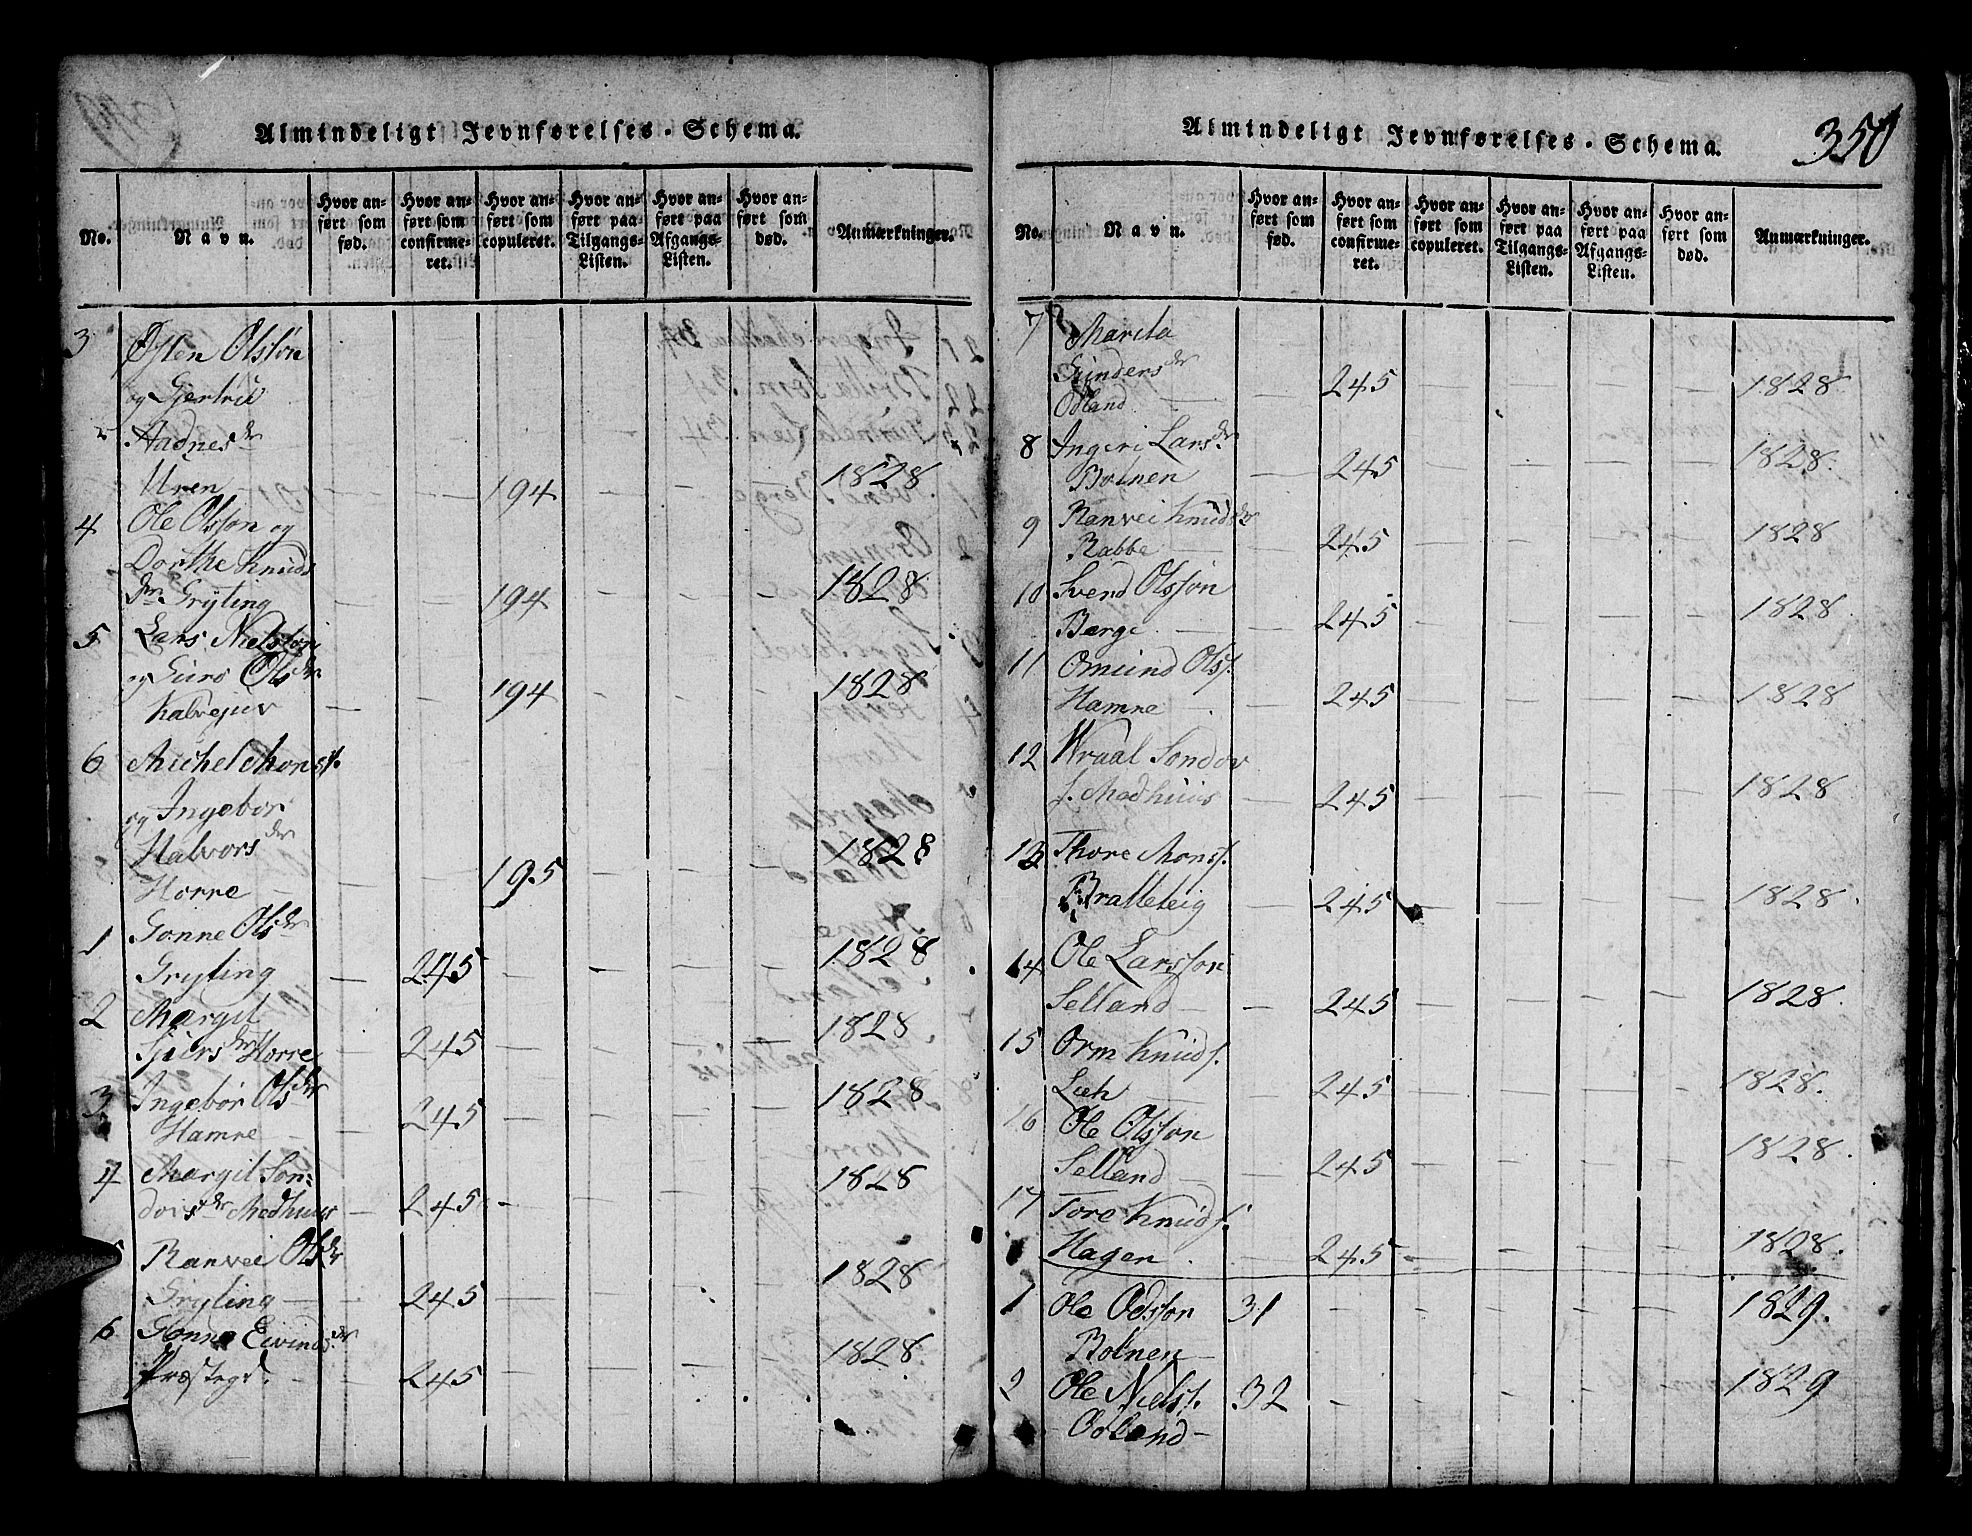 Almindeligt Jevnførelses-Schema.
No. Navn. Hvor anført som fød. Hvor anført som confirmeret. Hvor anført som copuleret. Hvor anført paa Tilgangs-Listen. Hvor anført paa Afgangs-Listen. Hvor anført som død. Anmærkninger.
3 Østen Olsson
og Gjertru
Aadnesdr
Uren 194 1828.
4 Ole Olsson og
Dorthe Knuds
dr Gryting 194 1828
5 Lars Nielsson
og Guro Olsdr
Kalvejuv 194 1828
6 Michel Monss.
og Ingebor
Halvorsdr
Horre 195 1828
1 Gonne Olsdr
Gryting 245 1828
2 Margit
Sjursdr Horre 245 1828
3 Ingebor Olsdr
Hamre 245 1828
4 Margit Son-
dovsdr Medhuus 245 1828
Ranvei Olsdr
Gryting 245 1828
6 Gonne Eivindsdr
Præstegd. 245 1828
Almindeligt Jevnførelses-Schema. 350
No. Navn. Hvor anført som fød. Hvor anført som confirmeret. Hvor anført som copuleret. Hvor anført paa Tilgangs-Listen. Hvor anført paa Afgangs-Listen. Hvor anført som død. Anmærkninger.
7 Marita
Gundersdr
Odland 245 1828
8 Ingeri Larsdr
Botnen 245 1828.
9 Ranvei Knudsdr
Rabbe 245 1828
10 Svend Olsson
Berge 245 1828
11 Omund Olss.
Hamre 245 1828
12 Wraal Sondov
s. Medhuus 245 1828
13 Thore Monss.
Bratteteig 245 1828.
14 Ole Larsson
Selland 245 1828.
15 Orm Knuds.
Lieh 245 1828.
16 Ole Olsson
Selland 245 1828.
17 Tore Knuds.
Hagen 245 1828.
1 Ole Odsson 31 1829.
Botnen
2 Ole Nielss. 32 1829
Odland